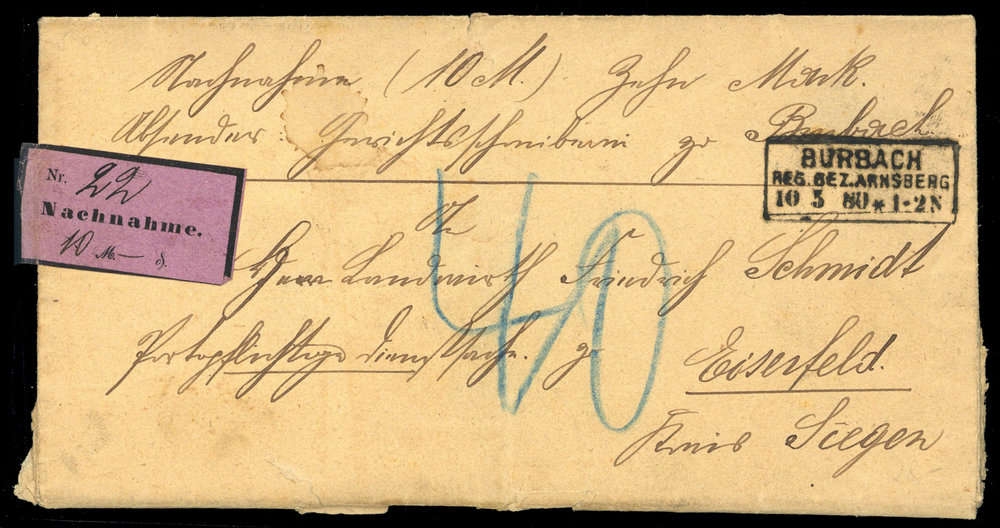 Nachnahme (10 M.) Zehn Mark.
Absender: Gerichtsschreiberei zu Burbach
BURBACH
REG. BEZ. ARNSBERG
10 5 80 * 1-2 N
Nr. 22
Nachnahme.
10 M. — ₰.
40
An
Herrn Landwirth Friedrich Schmidt
Portopflichtige Dienstsache. zu Eiserfeld.
Kreis Siegen